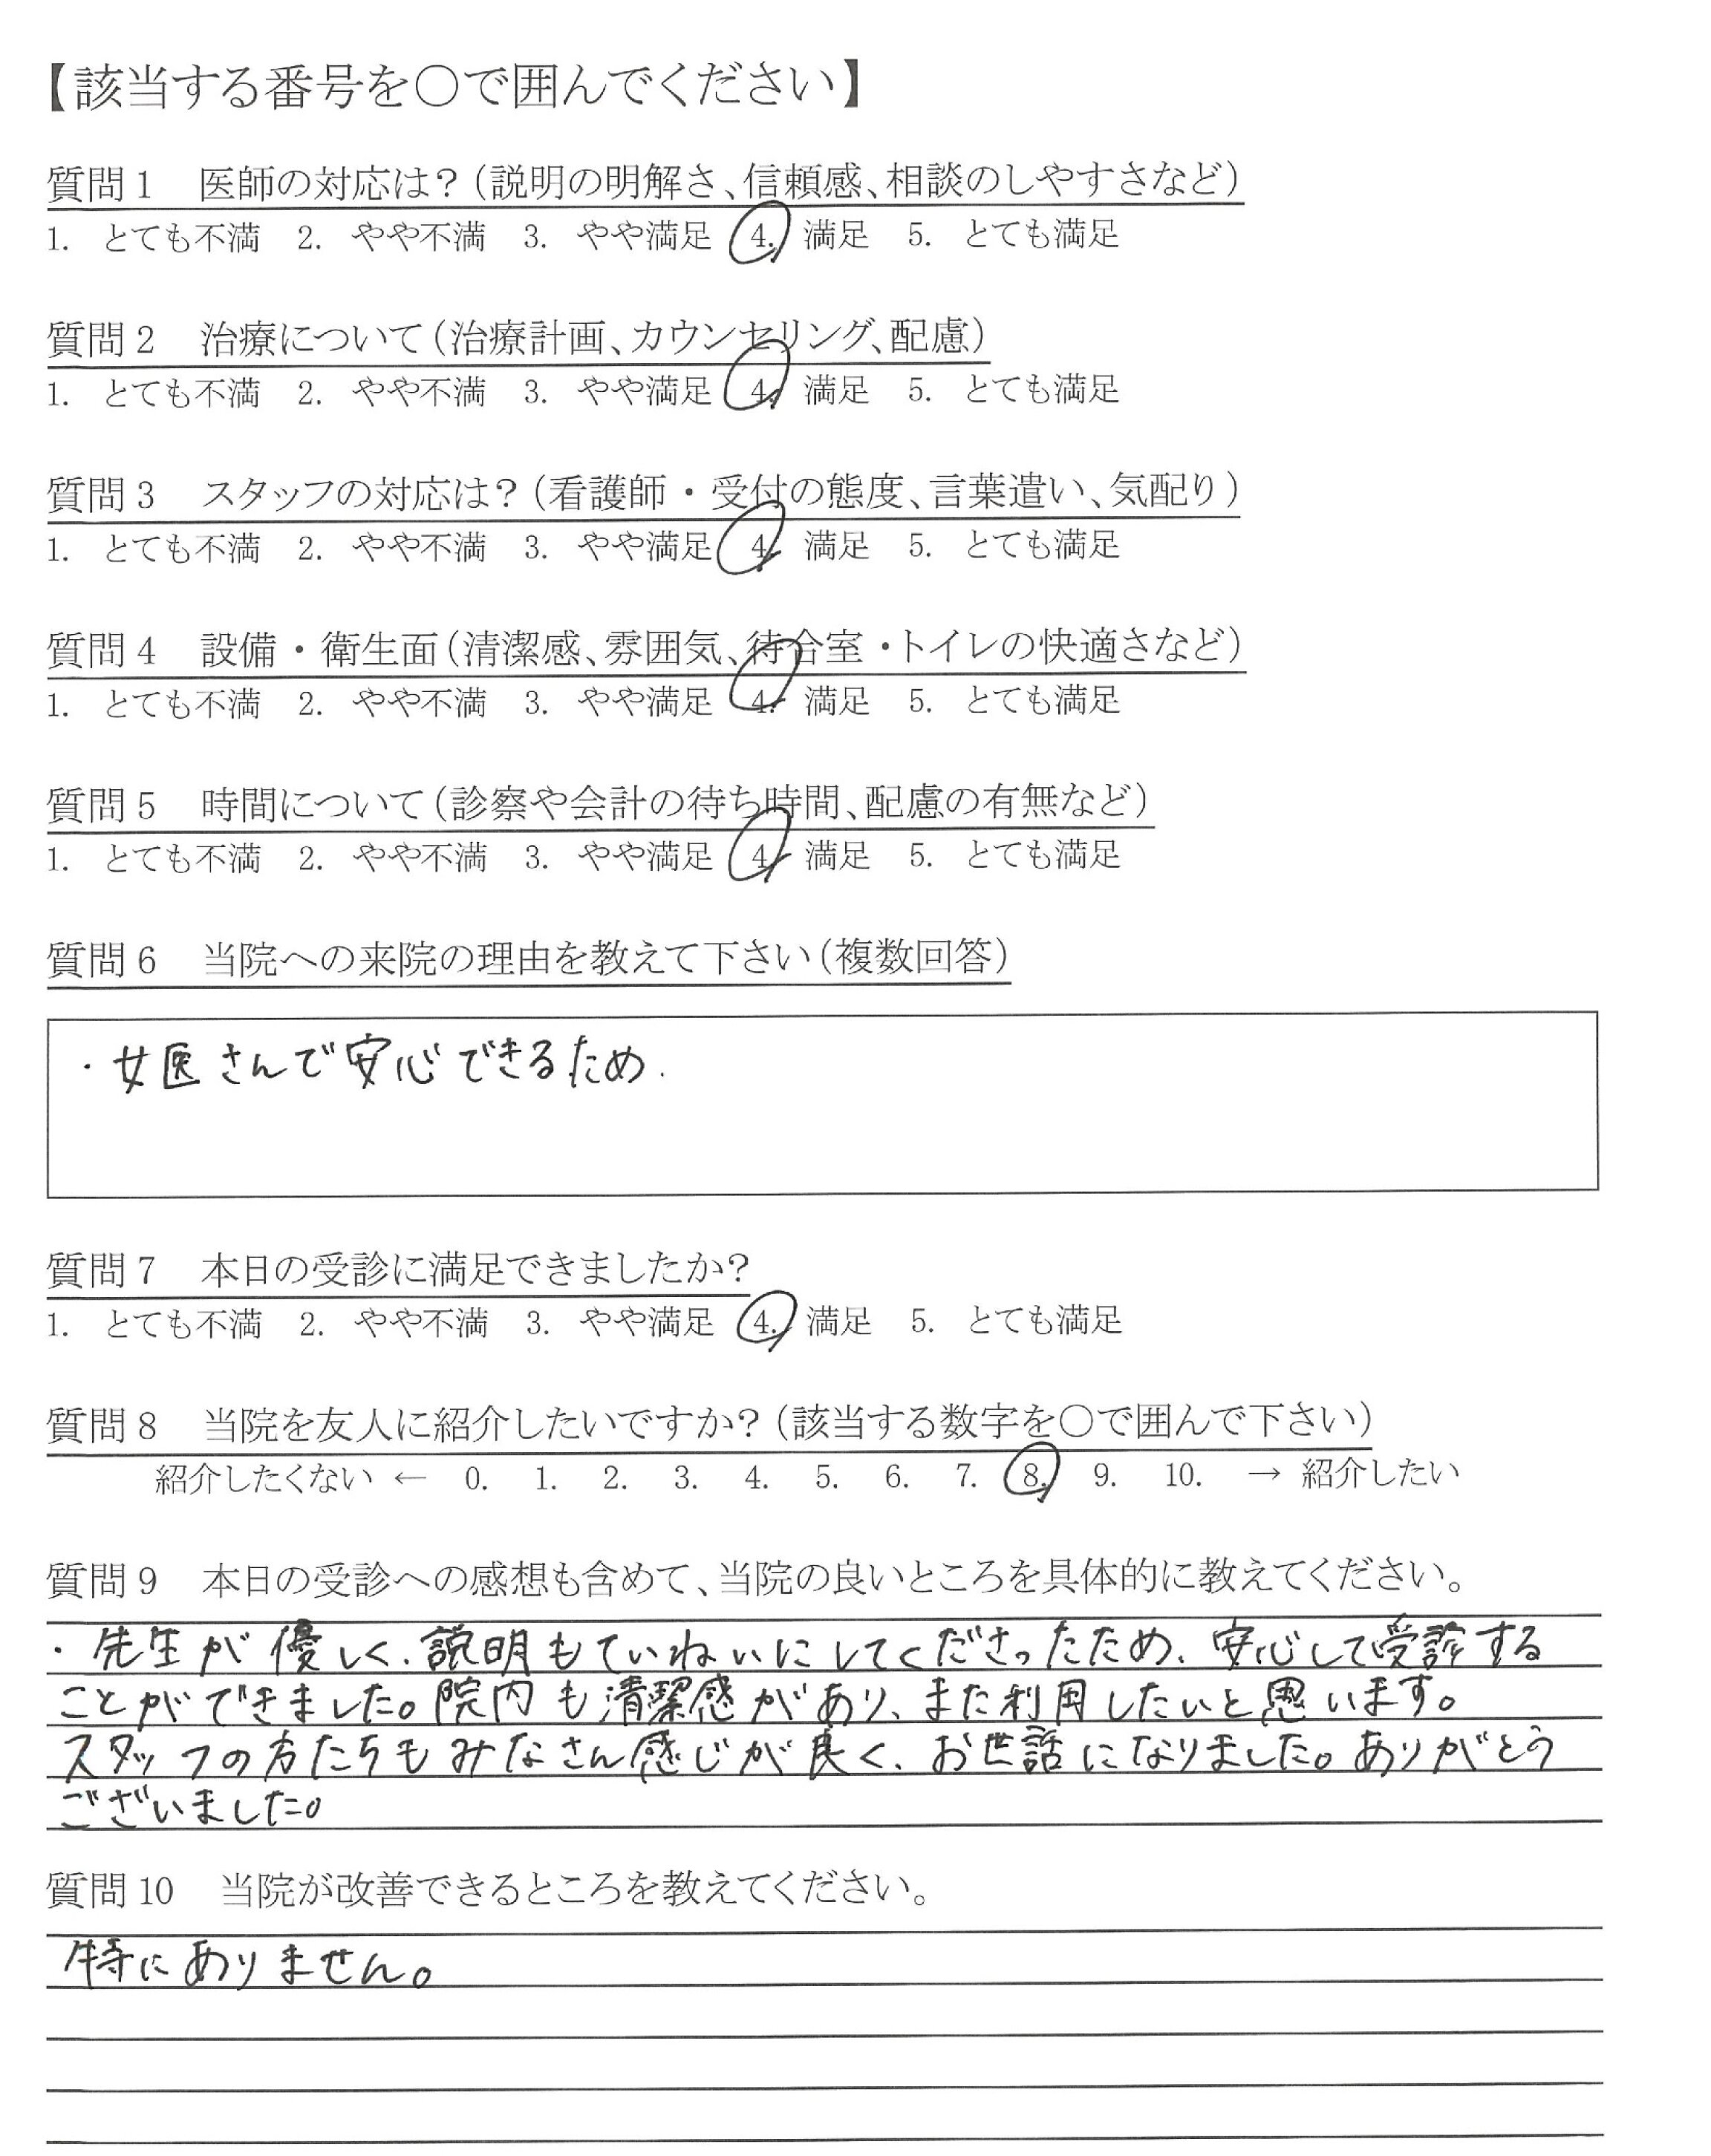 【該当する番号を○で囲んでください】
質問1　医師の対応は？（説明の明解さ、信頼感、相談のしやすさなど）
1.　とても不満　2.　やや不満　3.　やや満足　4.　満足　5.　とても満足
質問2　治療について（治療計画、カウンセリング、配慮）
1.　とても不満　2.　やや不満　3.　やや満足　4.　満足　5.　とても満足
質問3　スタッフの対応は？（看護師・受付の態度、言葉遣い、気配り）
1.　とても不満　2.　やや不満　3.　やや満足　4.　満足　5.　とても満足
質問4　設備・衛生面（清潔感、雰囲気、待合室・トイレの快適さなど）
1.　とても不満　2.　やや不満　3.　やや満足　4.　満足　5.　とても満足
質問5　時間について（診察や会計の待ち時間、配慮の有無など）
1.　とても不満　2.　やや不満　3.　やや満足　4.　満足　5.　とても満足
質問6　当院への来院の理由を教えて下さい（複数回答）
・女医さんで安心できるため.
質問7　本日の受診に満足できましたか？
1.　とても不満　2.　やや不満　3.　やや満足　4.　満足　5.　とても満足
質問8　当院を友人に紹介したいですか？（該当する数字を○で囲んで下さい）
紹介したくない ← 0. 1. 2. 3. 4. 5. 6. 7. 8. 9. 10. → 紹介したい
質問9　本日の受診への感想も含めて、当院の良いところを具体的に教えてください。
・先生が優しく、説明もていねいにしてくださったため、安心して受診する
ことができました。院内も清潔感があり、また利用したいと思います。
スタッフの方たちもみなさん感じが良く、お世話になりました。ありがとう
ございました。
質問10　当院が改善できるところを教えてください。
特にありません。